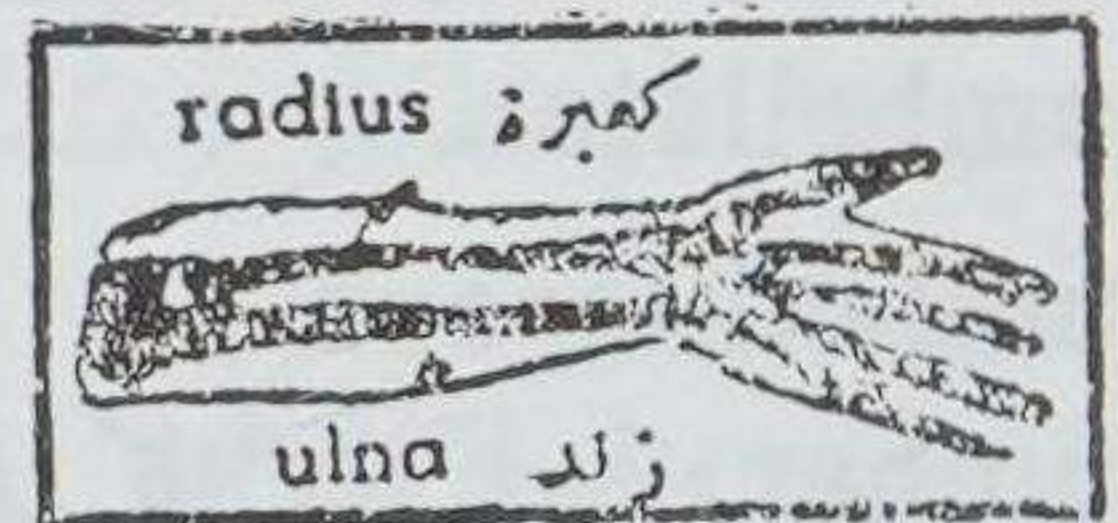 radius كعبرة
ulna زند